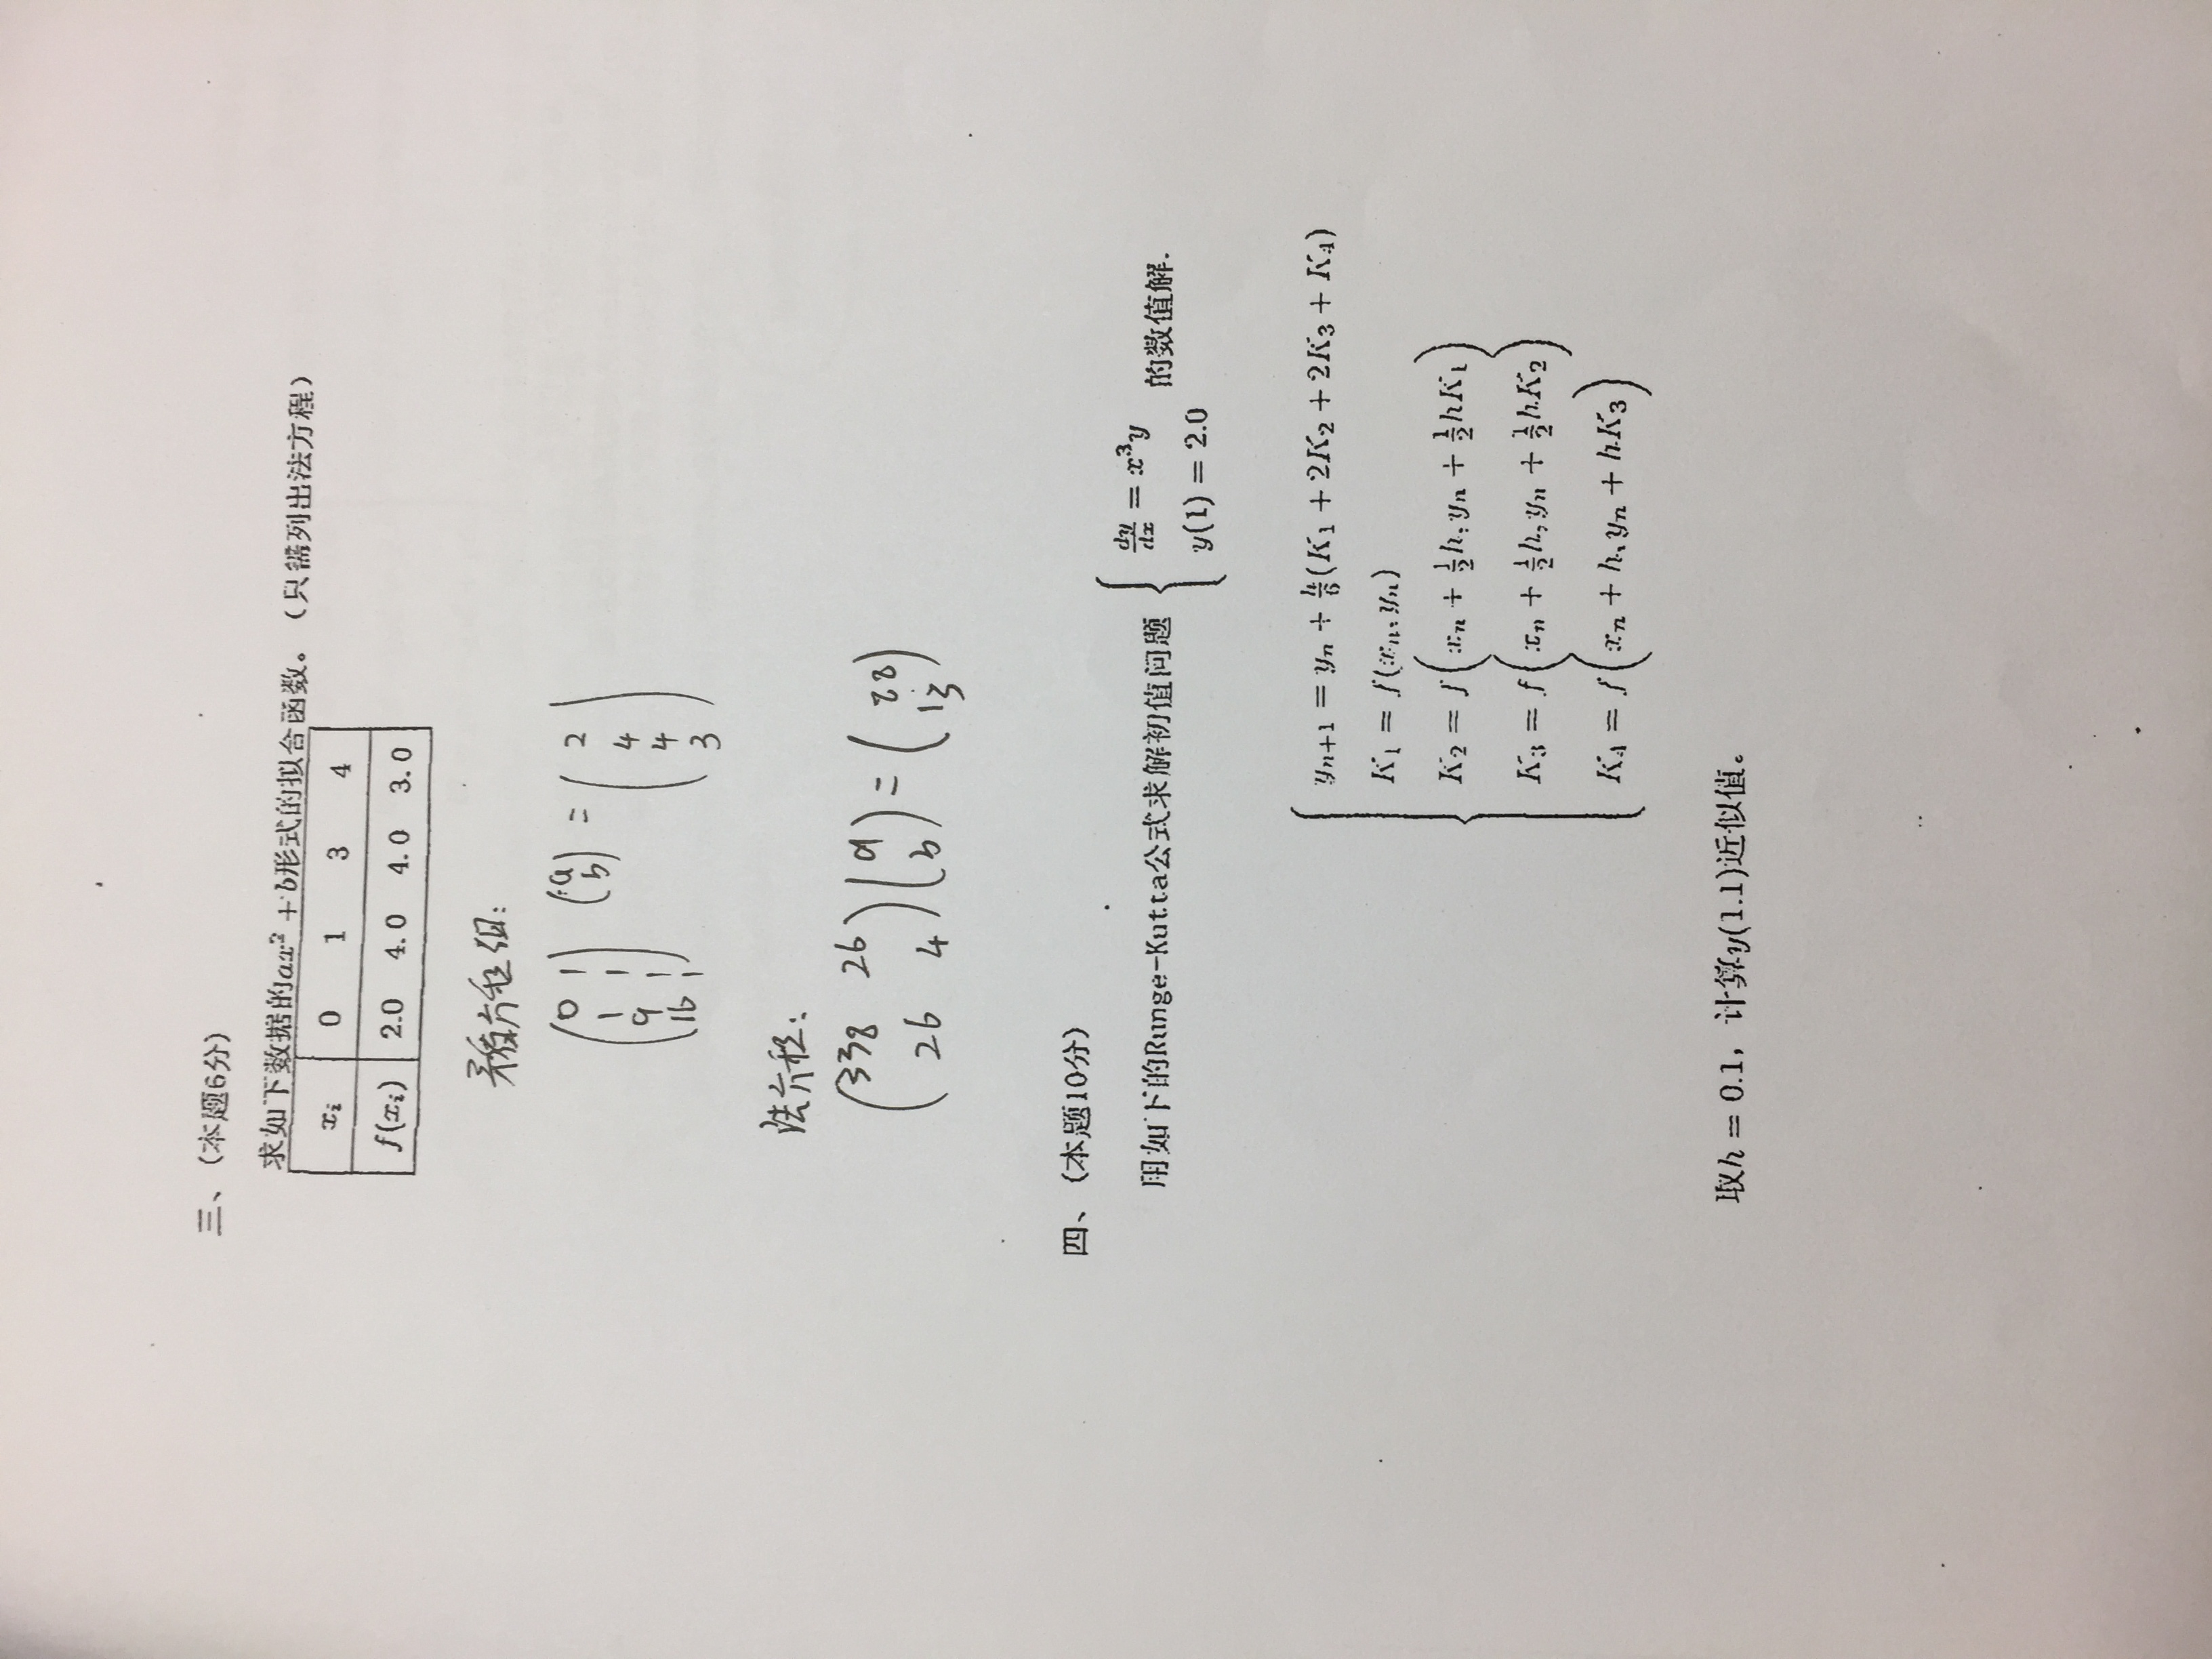 三、(本题6分)
求如下数据的ax² + b形式的拟合函数。(只需列出法方程)
xᵢ 0 1 3 4
f(xᵢ) 2.0 4.0 4.0 3.0
矛盾方程组:
(0 1; 1 1; 9 1; 16 1) (a; b) = (2; 4; 4; 3)
法方程:
(338 26; 26 4) (a; b) = (88; 13)
四、(本题10分)
用如下的Runge-Kutta公式求解初值问题 { dy/dx = x³y; y(1) = 2.0 的数值解.
yₙ₊₁ = yₙ + h/6(K₁ + 2K₂ + 2K₃ + K₄)
K₁ = f(xₙ, yₙ)
K₂ = f(xₙ + 1/2h, yₙ + 1/2hK₁)
K₃ = f(xₙ + 1/2h, yₙ + 1/2hK₂)
K₄ = f(xₙ + h, yₙ + hK₃)
取h = 0.1, 计算y(1.1)近似值。